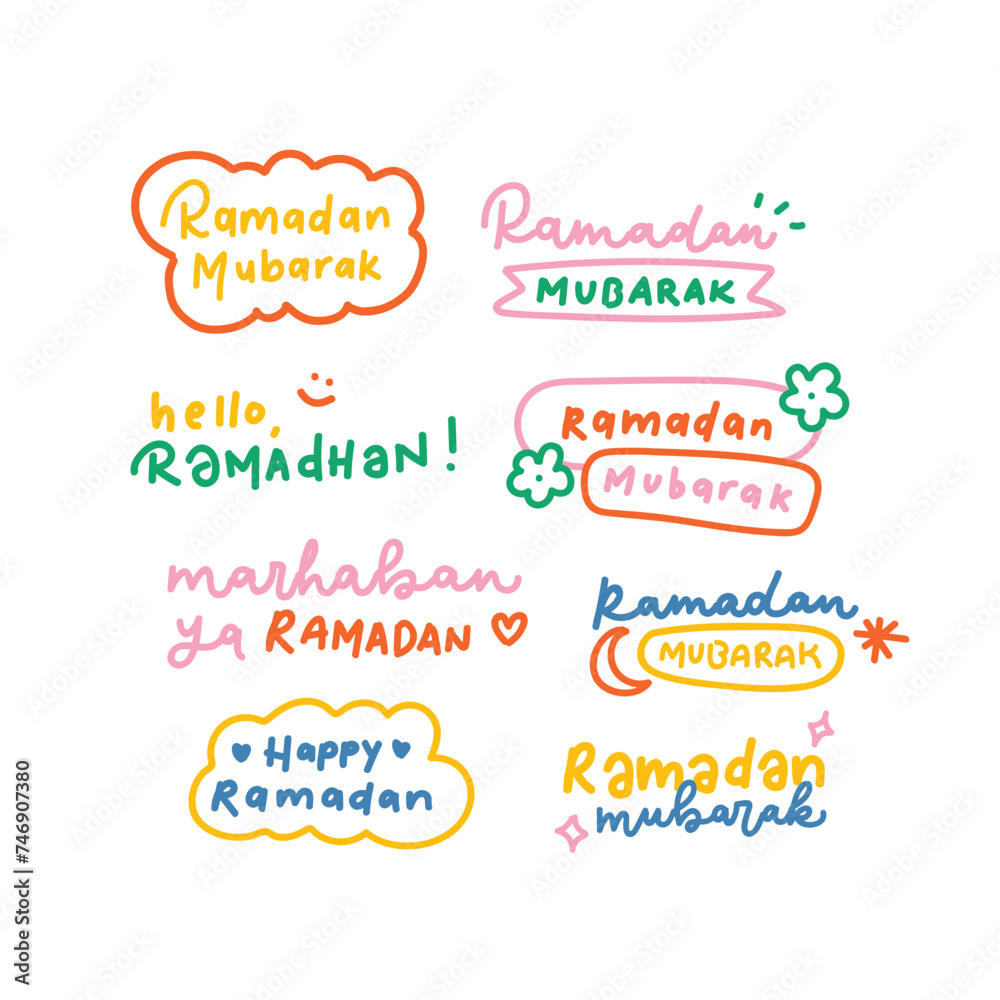 Ramadan
Mubarak
Ramadan
MUBARAK
hello,
RAMADHAN!
Ramadan
Mubarak
marhaban
ya RAMADAN
Ramadan
MUBARAK
Happy
Ramadan
Ramadan
mubarak
Adobe Stock | #746907380